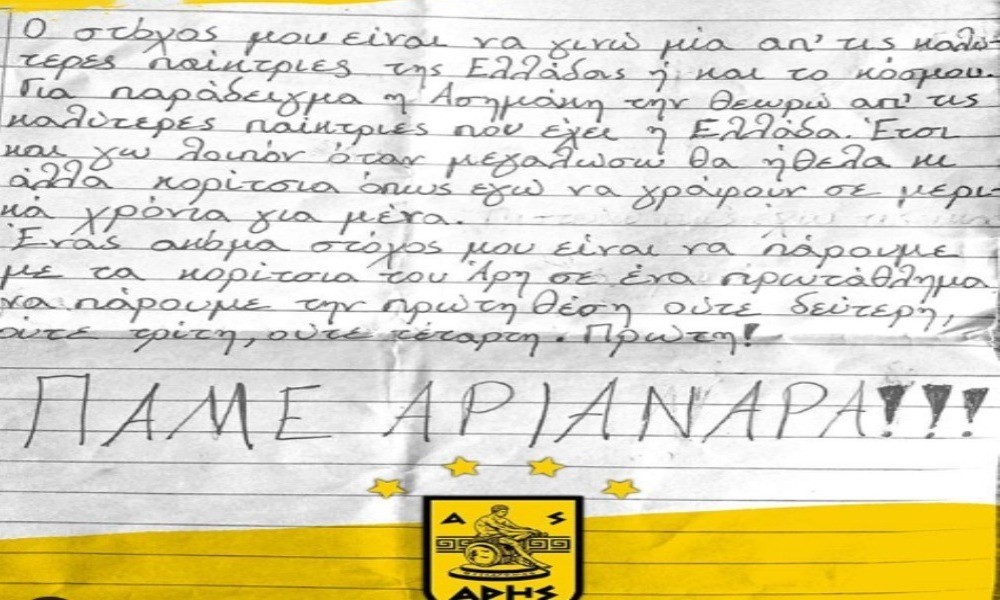 Ο στόχος μου είναι να γινώ μία απ' τις καλύ-
τερες παίκτριες της Ελλάδας ή και το κόσμου.
Για παράδειγμα η Ασημάκη την θεωρώ απ' τις
καλύτερες παίκτριες που έχει η Ελλάδα. Έτσι
και γω λοιπόν όταν μεγαλώσω θα ήθελα κι
άλλα κορίτσια όπως εγώ να γράφουν σε μερι-
κά χρόνια για μένα.
Ένας ακόμα στόχος μου είναι να πάρουμε
με τα κορίτσια του Άρη σε ένα πρωτάθλημα
να πάρουμε την πρώτη θέση ούτε δεύτερη,
ούτε τρίτη, ούτε τέταρτη. Πρώτη!
ΠΑΜΕ ΑΡΙΑΝΑΡΑ!!!
Α Σ
ΑΡΗΣ